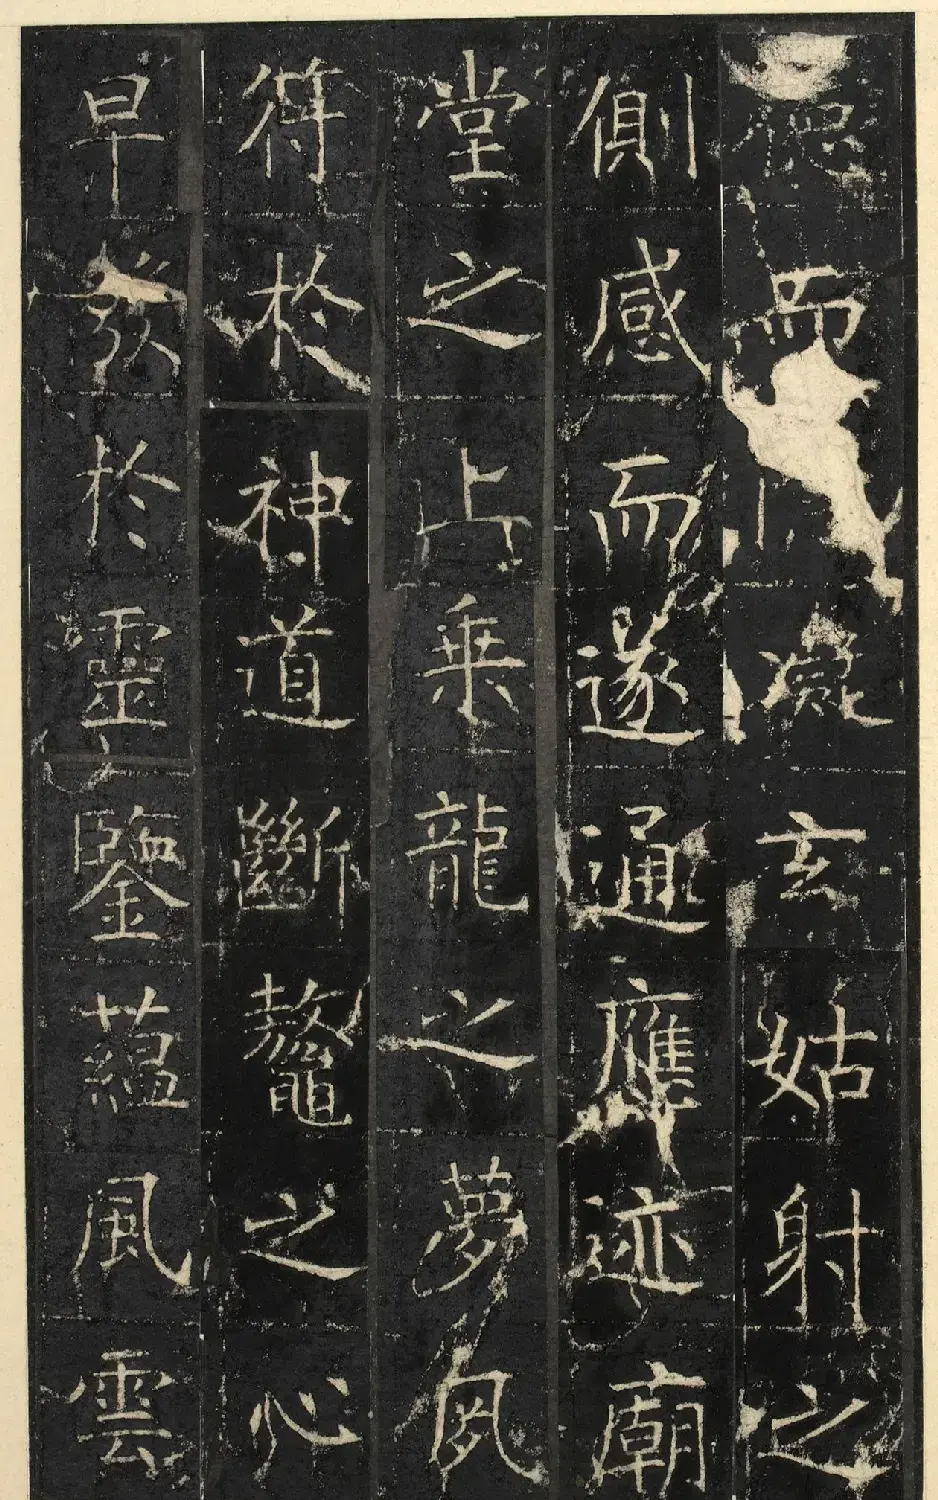 而凝玄姑射之
側感而遂通應迹廟
堂之上乗龍之夢夙
符於神道斷鼇之心
早發於靈鑒蘊風雲